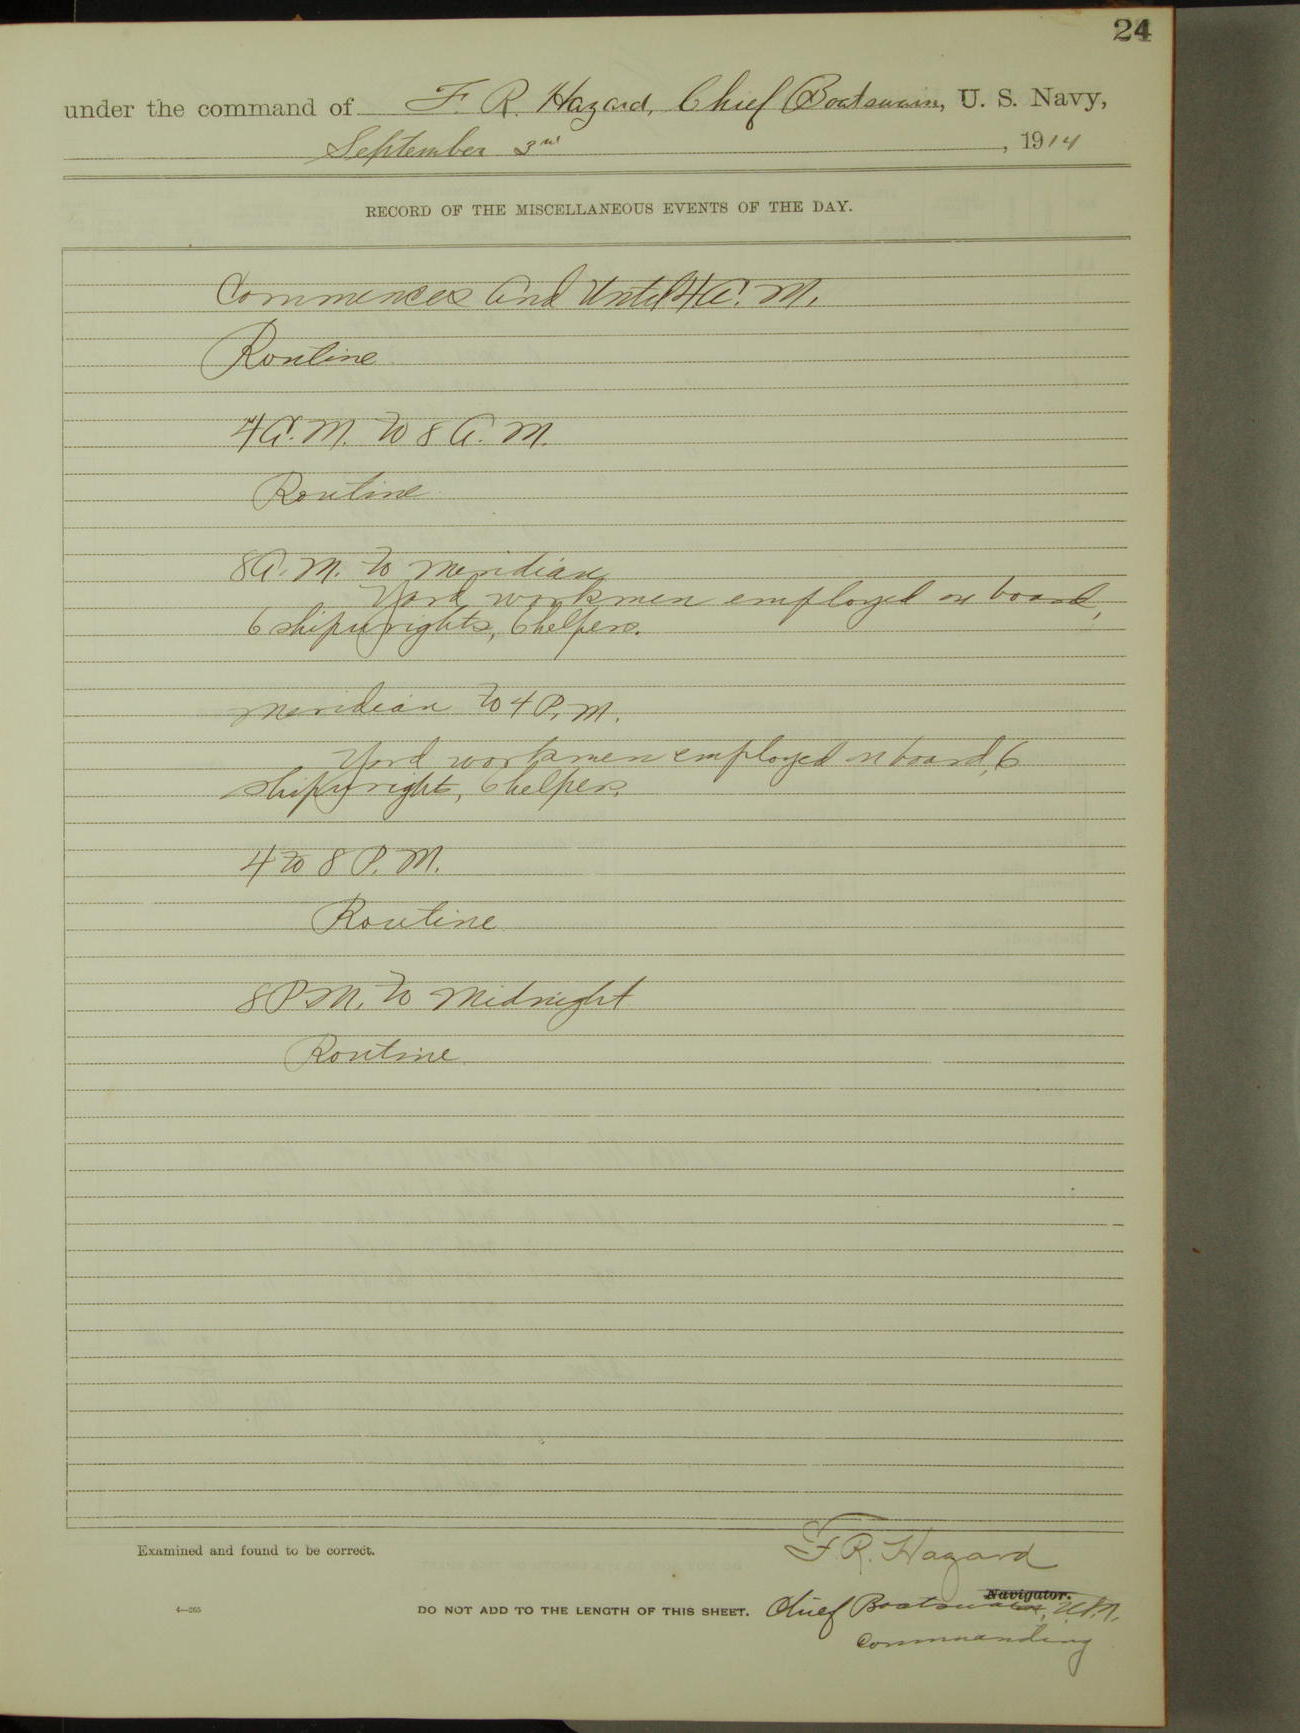 24
under the command of F. R. Hazard, Chief Boatswain, U. S. Navy,
September 3rd, 1914
RECORD OF THE MISCELLANEOUS EVENTS OF THE DAY.
Commences and Until 4 A. M.
Routine
4 A. M. to 8 A. M.
Routine
8 A. M. to Meridian
Yard workmen employed on board,
6 shipwrights, 6 helpers.
Meridian to 4 P. M.
Yard workmen employed on board, 6
shipwrights, 6 helpers.
4 to 8 P. M.
Routine
8 P.M. to Midnight
Routine
F. R. Hazard
Examined and found to be correct.
Navigator.
4—265
DO NOT ADD TO THE LENGTH OF THIS SHEET. Chief Boatswain, U.S.N.
Commanding